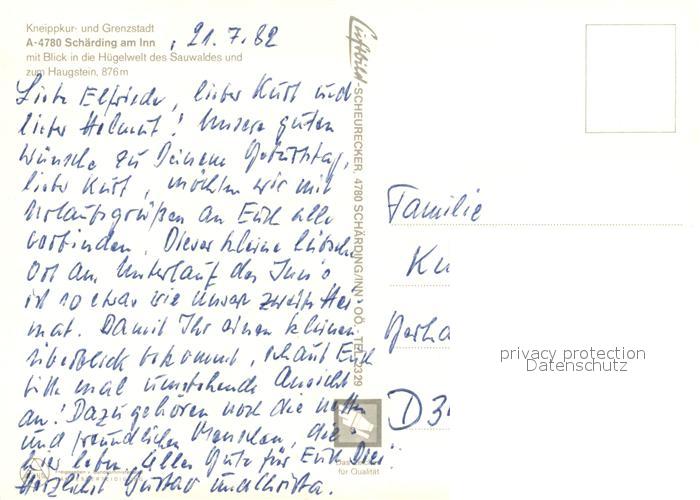 Kneippkur- und Grenzstadt
A-4780 Schärding am Inn , 21.7.82
mit Blick in die Hügelwelt des Sauwaldes und
zum Haugstein, 876 m
Liebe Elfriede, lieber Kurt und
lieber Helmut! Unsere guten
Wünsche zu Deinem Geburtstag,
lieber Kurt, möchten wir mit
Urlaubsgrüßen an Euch alle
verbinden. Dieser kleine hübsche
Ort am Unterlauf des Inn's
ist so etwas wie unsere zweite Hei-
mat. Damit Ihr einen kleinen
Überblick bekommt, schaut Euch
bitte mal umstehende Ansicht
an! Dazu gehören noch die netten
und freundlichen Menschen, die
hier leben. Alles Gute für Euch Drei!
Herzlichst Gustav und Christa.
Luftbild-SCHEURECKER, 4780 SCHÄRDING/INN, OÖ., TEL.
für Qualität
Familie
Ku
Gerha
D 3
privacy protection
Datenschutz